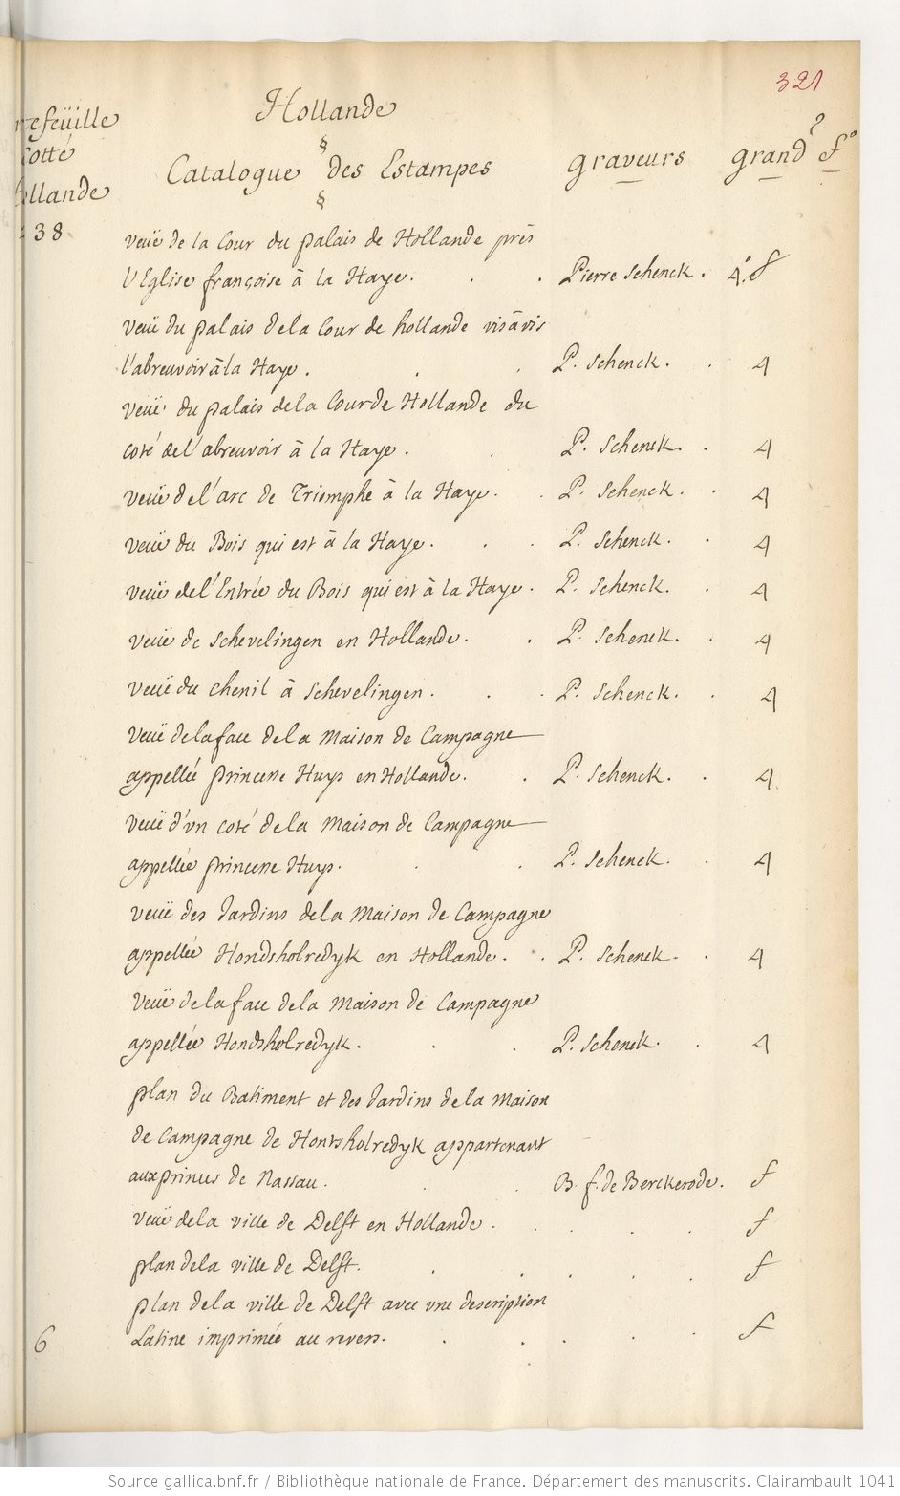 321
Hollande
tefeüille
Cotté
llande
38
§
Catalogue des Estampes graveurs grand? fo
§
veüe de la Cour du palais de Hollande près
l'Eglise françoise à la Haye. Pierre Schenck. 4. f
veüe du palais de la Cour de hollande vis à vis
l'abreuvoir à la Haye. P. Schenck. 4
veüe du palais de la Cour de Hollande du
coté de l'abreuvoir à la Haye. P. Schenck. 4
veüe de l'arc de Triumphe à la Haye. P. Schenck. 4
veüe du Bois qui est à la Haye. P. Schenck. 4
veüe de l'Entrée du Bois qui est à la Haye. P. Schenck. 4
veüe de Schevelingen en Hollande. P. Schenck. 4
veüe du chenil à Schevelingen. P. Schenck. 4
veüe de la face de la Maison de Campagne
appellée princene Huys en Hollande. P. Schenck. 4
veüe d'vn coté de la Maison de Campagne
appellée princene Huys. P. Schenck. 4
veüe des Jardins de la Maison de Campagne
appellée Hondsholredyk en Hollande. P. Schenck. 4
veüe de la face de la Maison de Campagne
appellée Hondsholredyk. P. Schenck. 4
plan du Batiment et des Jardins de la Maison
de Campagne de Hontsholredyk appartenant
aux princes de Nassau. B. f. de Berckerode. f
veüe de la ville de Delft en Hollande. f
plan de la ville de Delft. f
plan de la ville de Delft avec vne description
6 Latine imprimée au revers. f
Source gallica.bnf.fr / Bibliothèque nationale de France. Département des manuscrits. Clairambault 1041